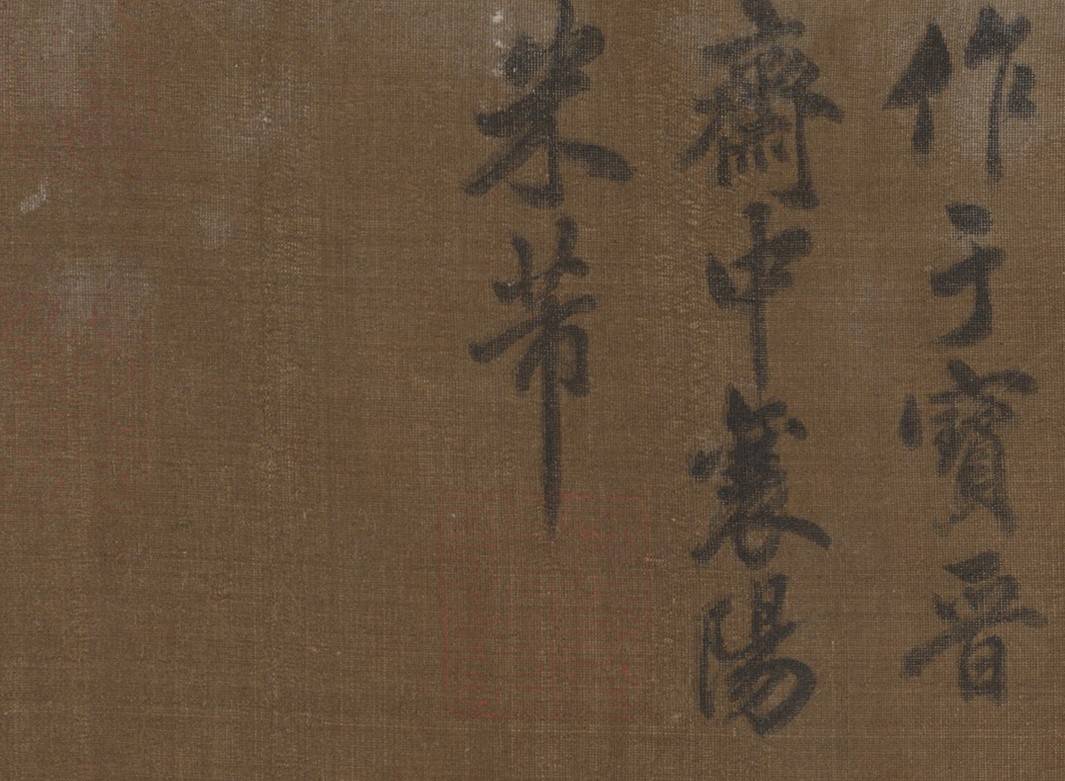 作于寶晋
齋中襄陽
米芾